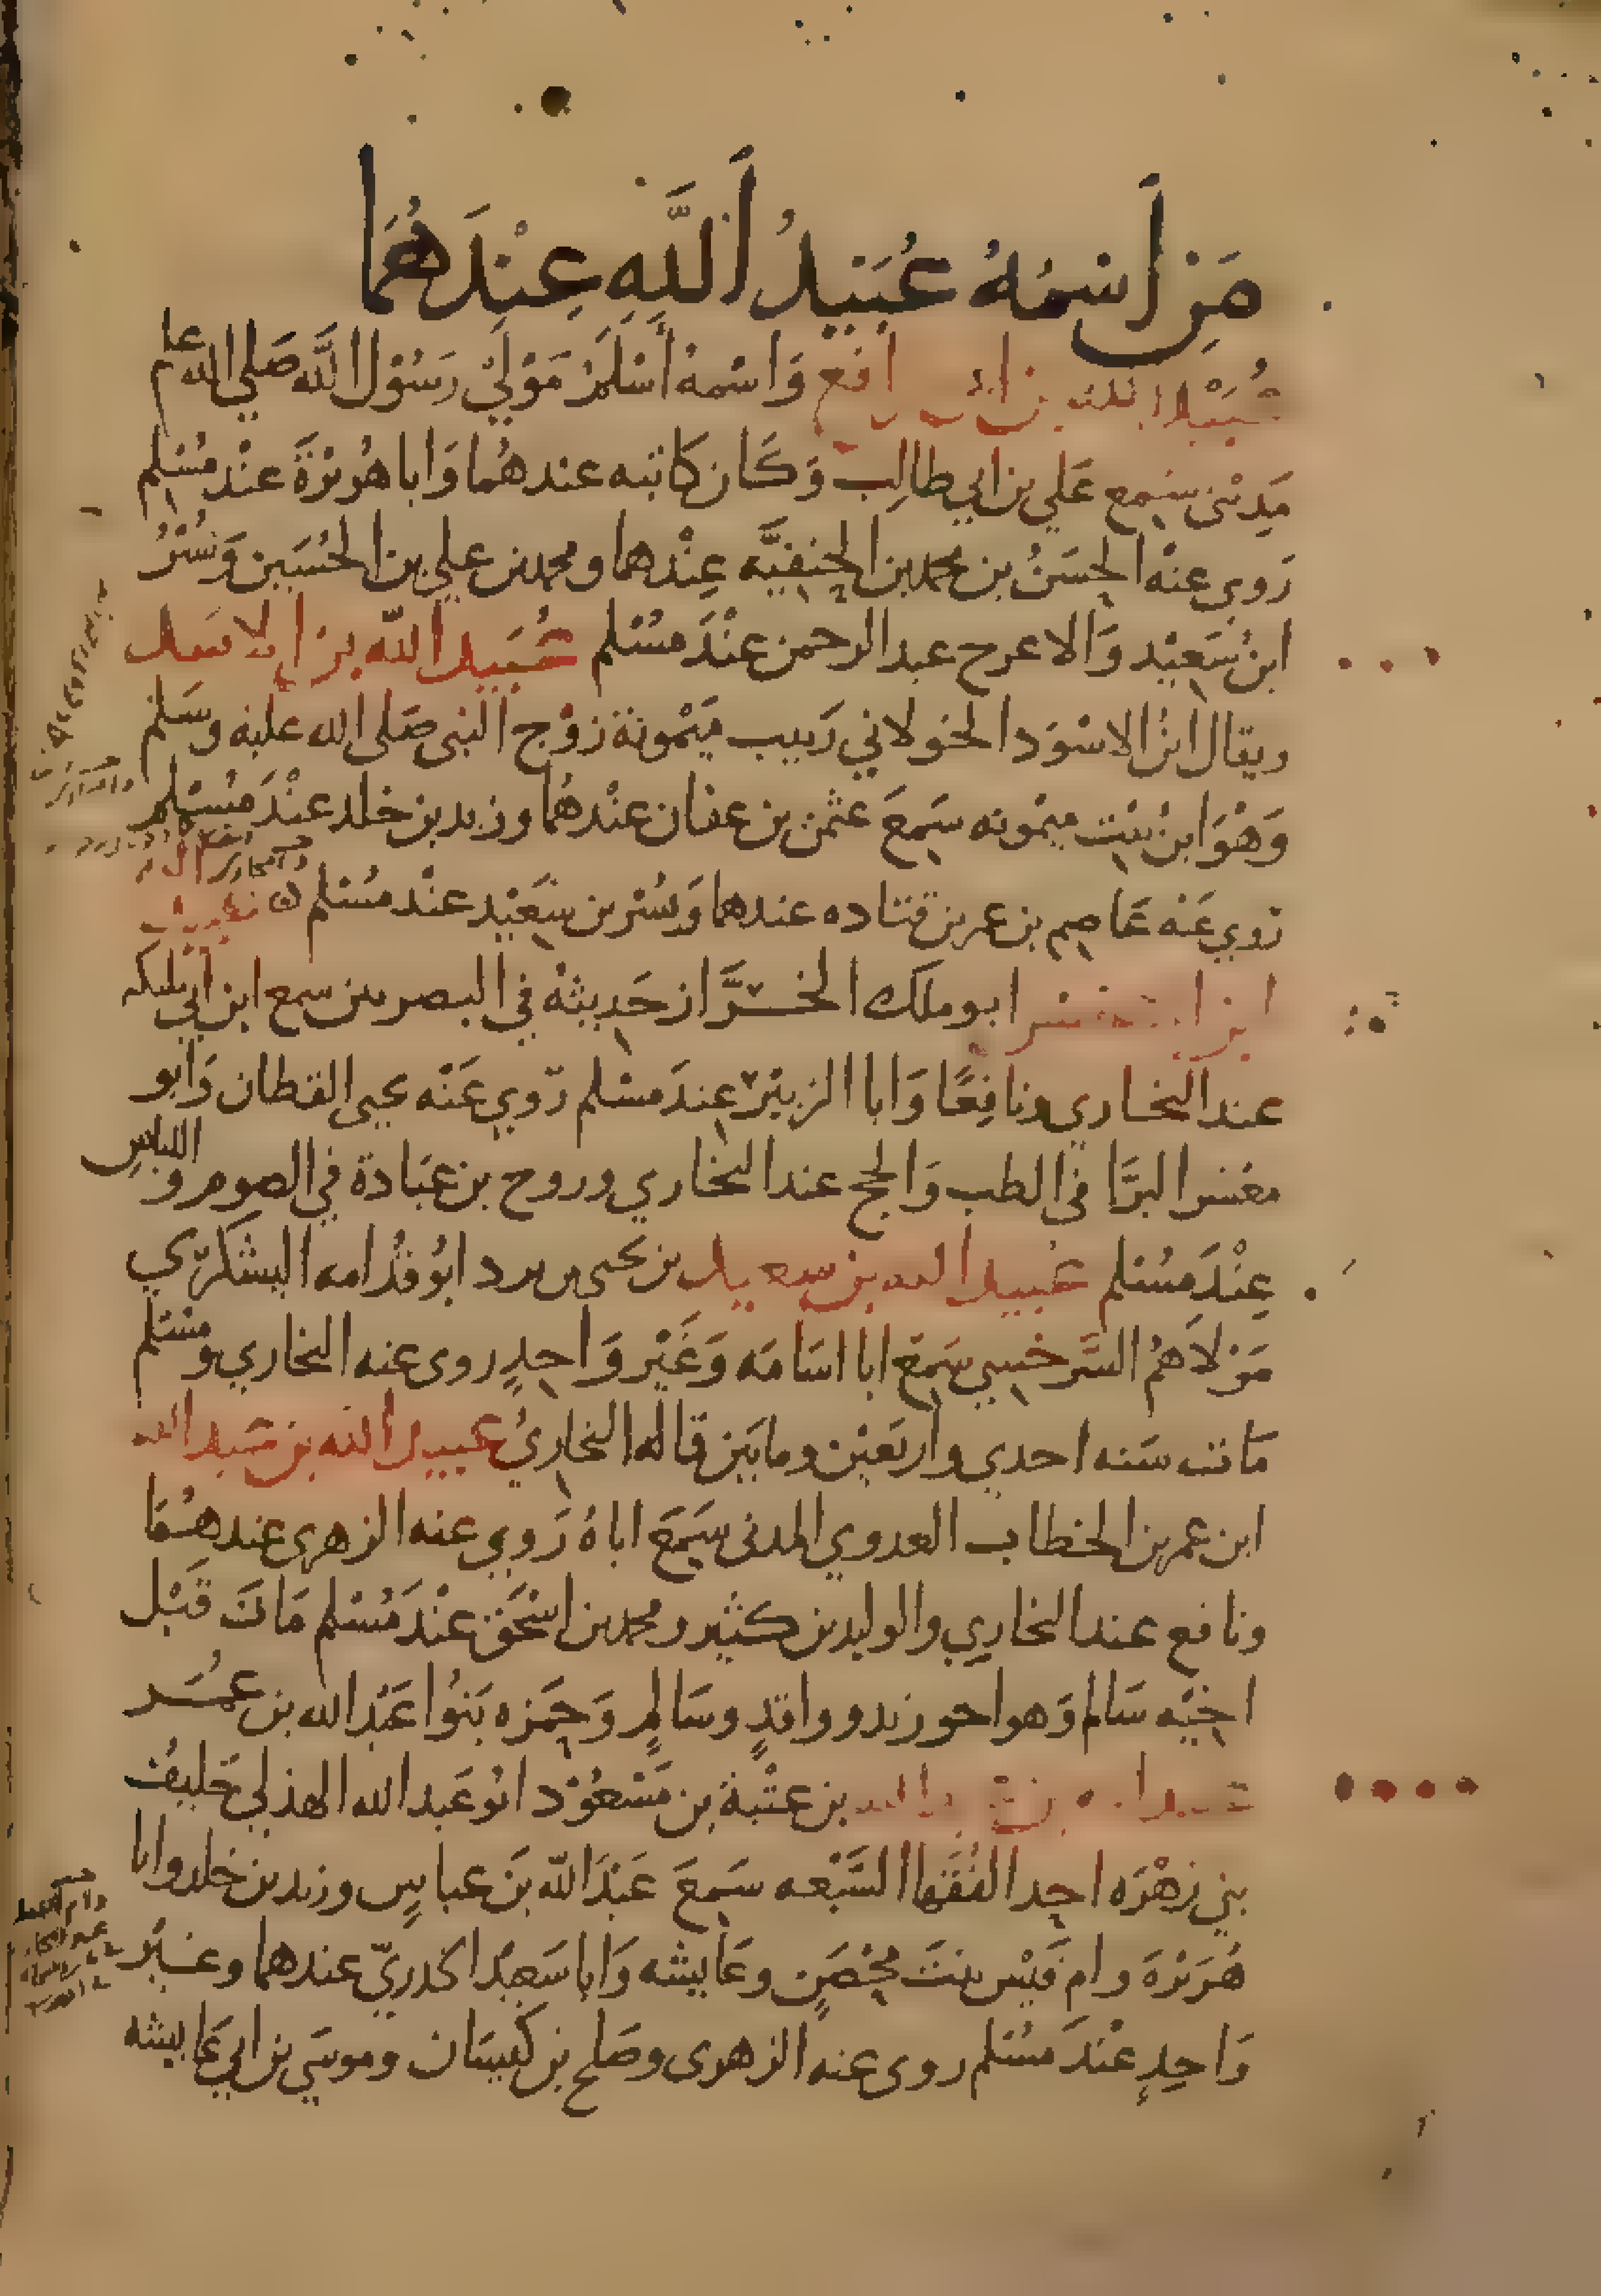 مَنْ اسمُهُ عُبَيْدُ اَللَّهِ عِنْدَهُمَا
عُبَيْد الله بن ابي رافع وَاسْمهُ أَسْلَمُ مَوْلَيْ رَسُوْل اللَّه صَلي الله علم
مَدِيْني سَمِع عَلي بن ابي طالِب وَكَان كاتبه عندهُما وَابا هُرَيْرَةَ عنْد مُسْلم
رَوي عنْه الحسَنُ بن محمد بن الحنفيَّه عِنْدهما ومحمد بن علي بن الحُسَين وَبُسْرُ
ابنُ سَعِيْد وَالاعرج عبد الرحمن عنْدَ مسْلم عُبَيد الله بن الاسَد
ويقال ابنُ الاسْوَد الخولاني رَبيب مَيْمُونة زوْج النبي صَلى الله عليه وسَلم
وَهْوَ ابن بنْت ميْمونه سَمِعَ عثمن بن عفان عنْدهُما وزيد بن خلد عنْدَ مُسْلم
رَوي عَنْه عَاصِم بن عمر بن قتاده عندهما وَبُسْر بن سَعِيْد عنْد مسْلم عبيد الله
ابن الاخنس ابو ملك الخزَّاز حَديثهُ في البصريين سمع ابن ابي مليكه
عند البخاري ونافِعًا وَابا الزبيْر عِندَ مسْلم رَوي عَنْه يحيى القطان وَابو
معْشر البرَّا في الطب وَالحج عند البخاري وروح بن عبَادة في الصوم واللباسِ
عِنْدَ مسْلم عُبيد الله بن سعيد بن يحيى بن برد ابُو قدُامه اليشكري
مَوْلَاهُمْ السَّرخسِي سَمِعَ ابا اسَامَه وَغَيْر وَاحِدٍ روى عنه البخاري ومسْلم
مَات سَنه احدي وارْبَعيْن ومايتَين قاله البخاريُ عبيد الله بن عَبد الله
ابن عمر بن الخطاب العدوي المدني سَمِعَ اباهُ رَوي عنه الزهرى عندهُمَا
ونافع عند البخارِي والوليد بن كثيْر ومحمد بن اسْحَق عنْدَ مُسْلم مَاتَ قبْل
اخيْه سَالم وَهو اخو زيد وواقدٍ وسَالمٍ وَحمزه بَنُوا عَبْد الله بن عمُـَر
عبيد الله بن عبد الله بن عتْبة بن مَسْعُوْد ابُو عَبد الله الهذلي حَليف
بني زهْرَه احد الفُقهَا السَّبْعه سَمِعَ عَبْدَ الله بنَ عباسٍ وزيد بن خلد وابا
هُرَيْرةَ وام قَيْس بنتَ مِحْصَنٍ وعَايشه وَابا سَعِيْد الخدريّ عندهما وغيْر
وَاحِدٍ عنْدَ مسْلم روى عنه الزهرى وصَلح بن كَيْسَان وموسَي بن ابي عَايشه